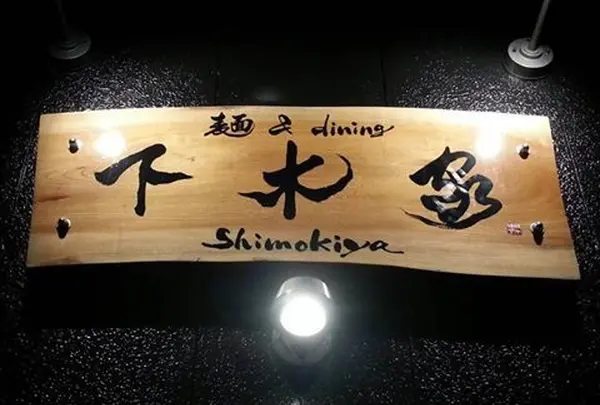 麺 & dining
下木家
Shimokiya